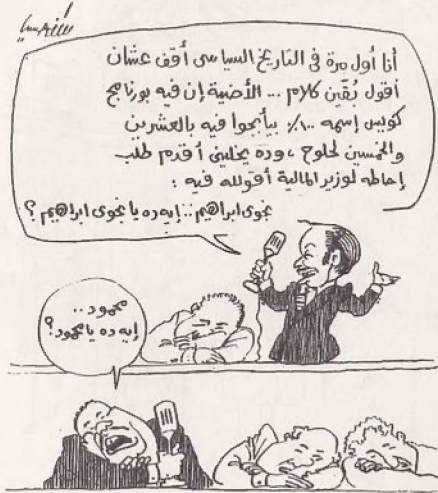 أنا أول مرة في التاريخ السياسى أقف عشان
أقول بُقّين كلام ... الأضية إن فيه بورنامج
كويس إسمه ١٠٠٪ بيأبجوا فيه بالعشرين
والخمسين لحلوح ، وده يخلينى أقدم طلب
إحاطه لوزير المالية أقولله فيه :
نجوى ابراهيم .. إيه ده يا نجوى ابراهيم ؟
محمود ..
إيه ده يا محمود ؟